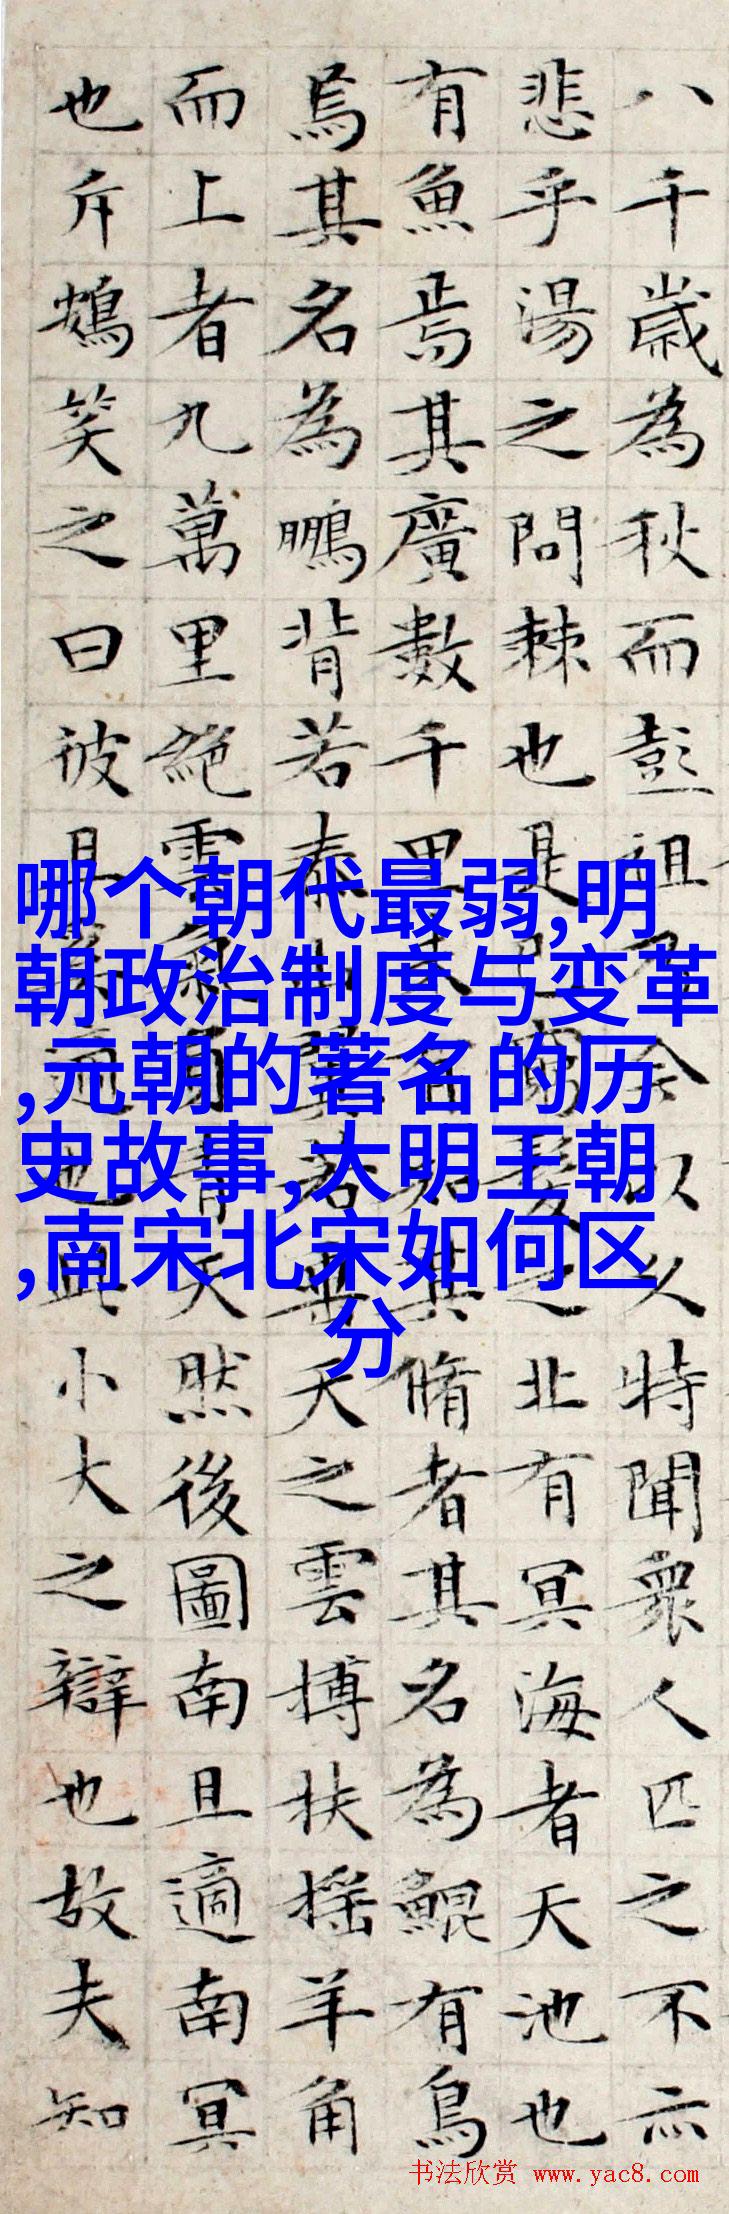 八千歲為秋而彭祖今以久特聞衆人匹之不亦
悲乎湯之問棘也是已窮髮之北有冥海者天池也
有魚焉其廣數千里未有知其脩者其名為鯤有鳥
焉其名為鵬背若泰山若垂天之雲搏扶搖羊角
而上者九萬里絕雲氣負青天然後圖南且適南冥
也斥鴳笑之曰彼且適也此小大之辯也故夫知
哪个朝代最弱,明
朝政治制度与变革
,元朝的著名的历
史故事,大明王朝
,南宋北宋如何区
分
书法欣赏 www.yac8.com